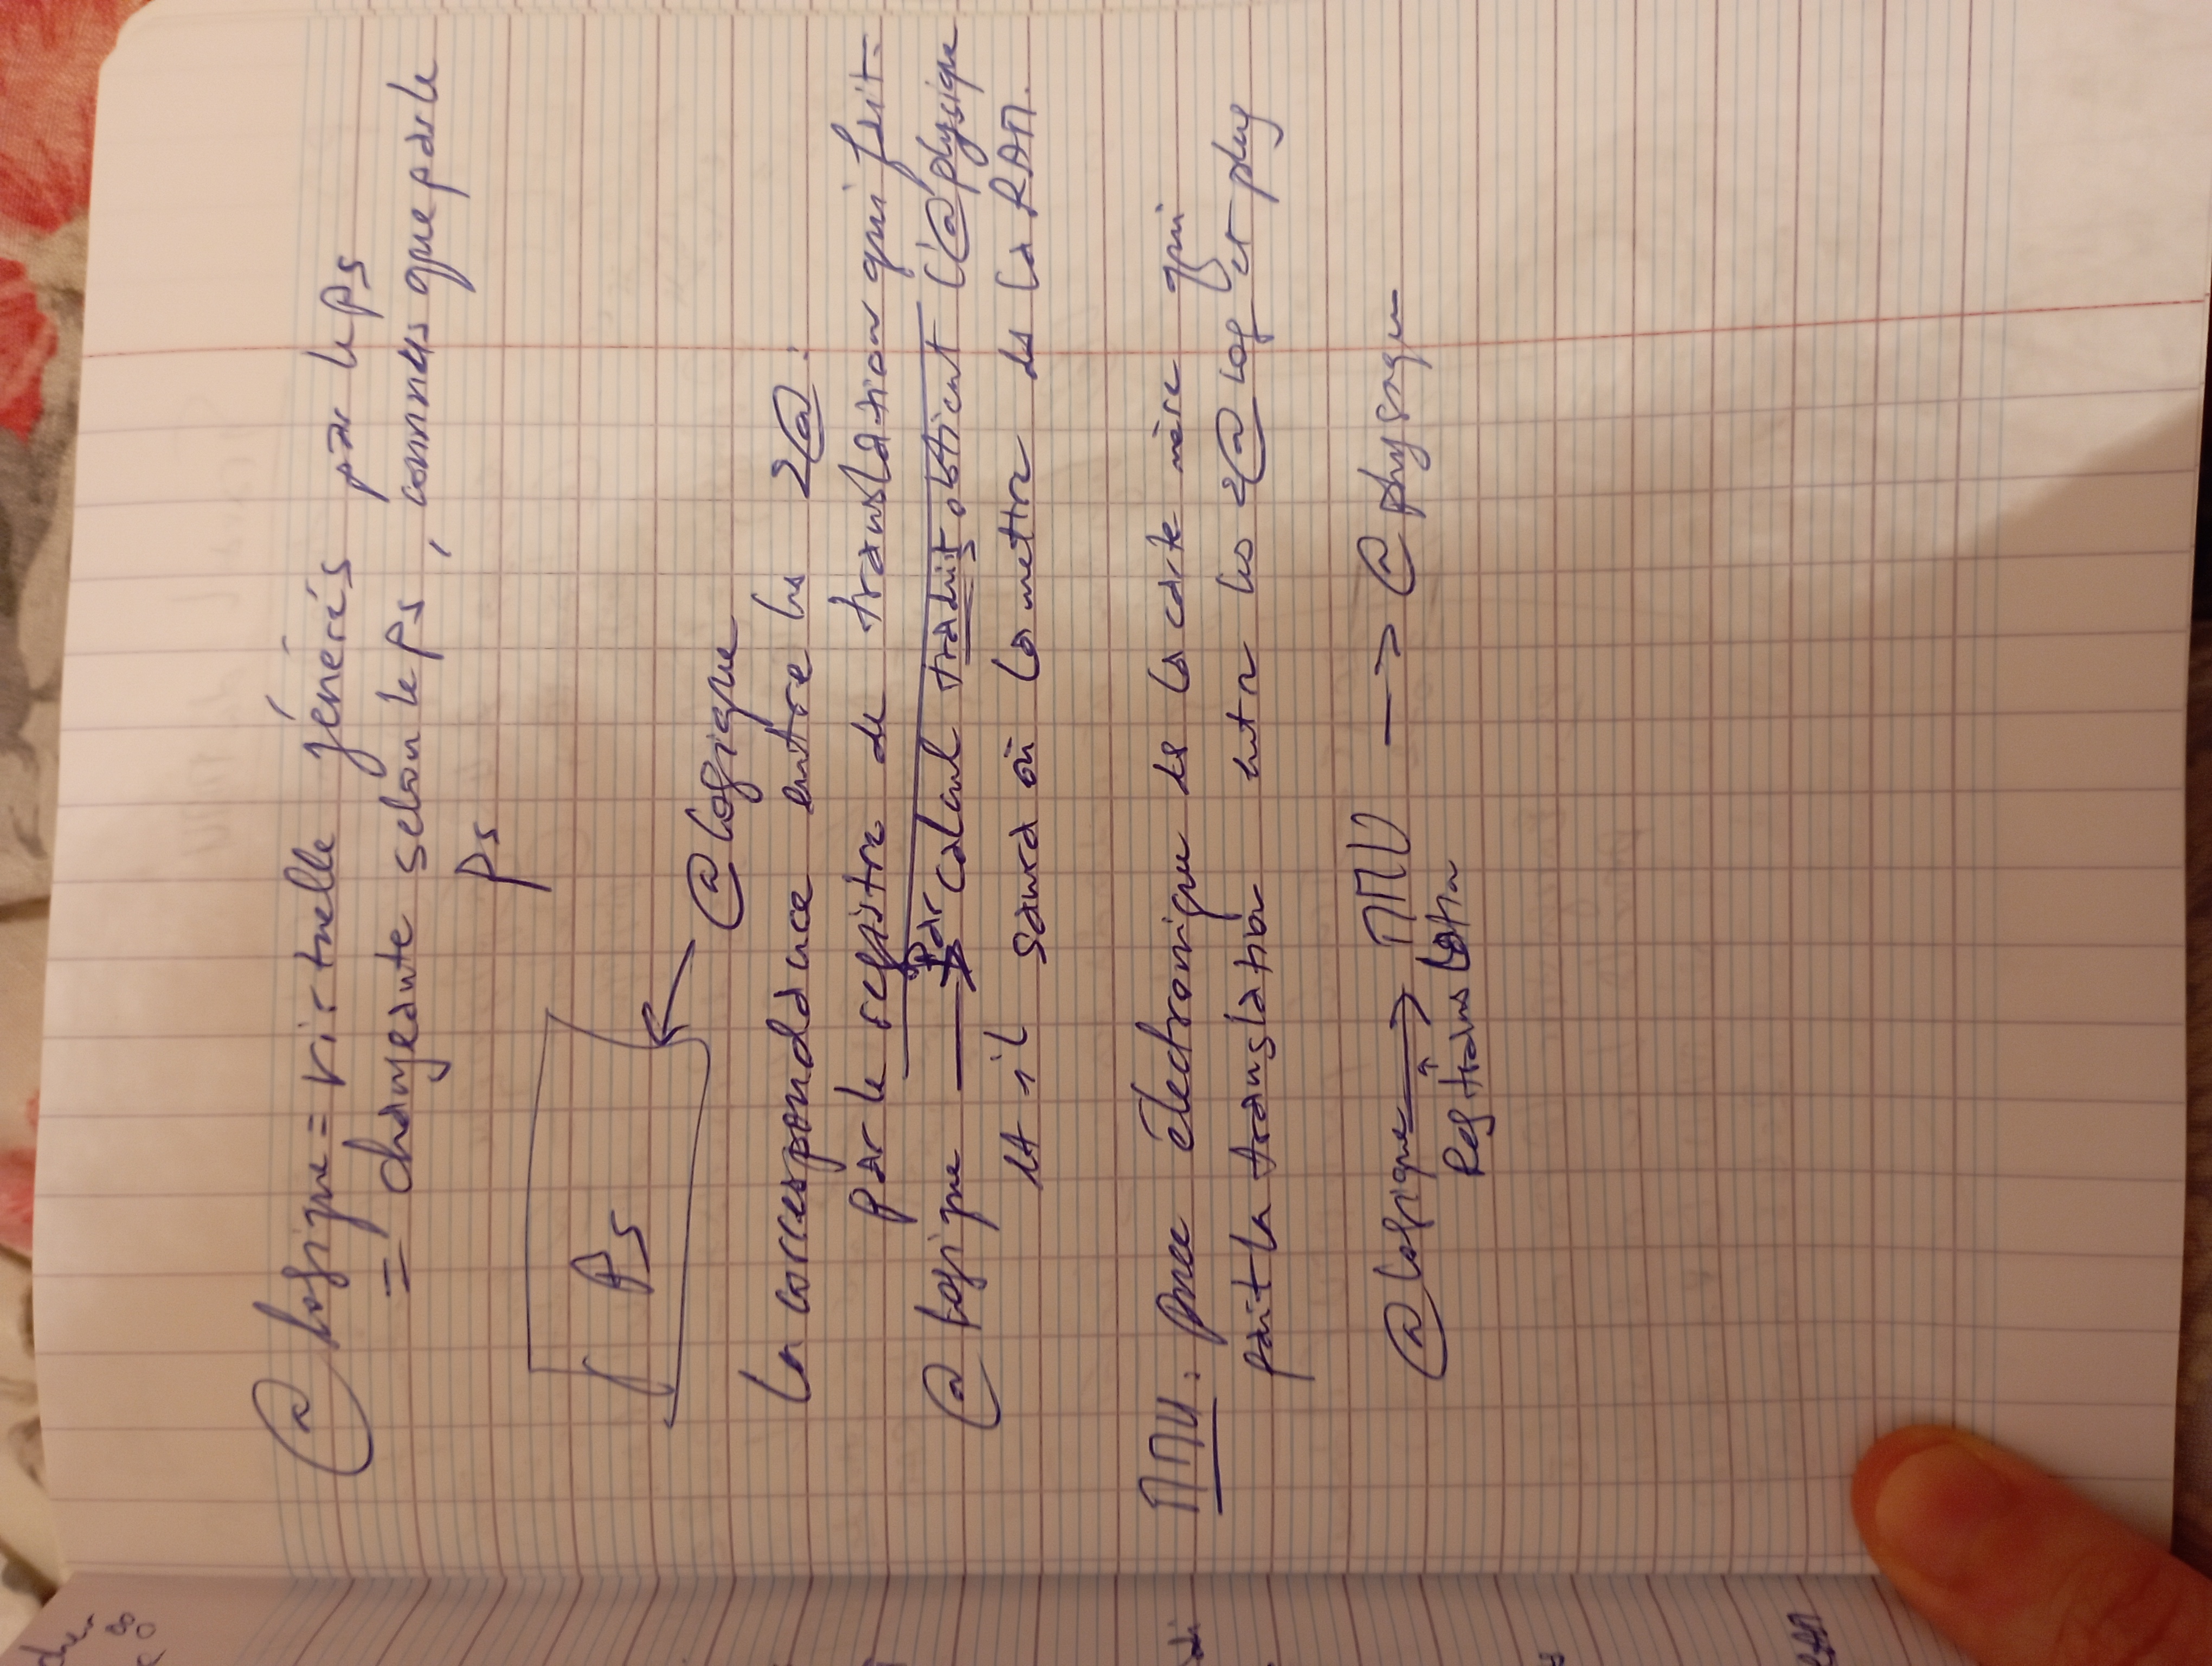 @ logique = virtuelle générés par le Ps
= changeante selon le Ps, connues que par le
Ps
Ps
@ logique
La correspondance entre les 2 @ :
par le registre de translation qui fait =
@ logique → par calcul traduit obtient l'@ physique
et il saura où la mettre ds la RAM.
MMU : puce électronique ds la carte mère qui
fait la translation entre les 2 @ log et phy
@ logique → MMU → @ physique
↑
Reg translation
RAM